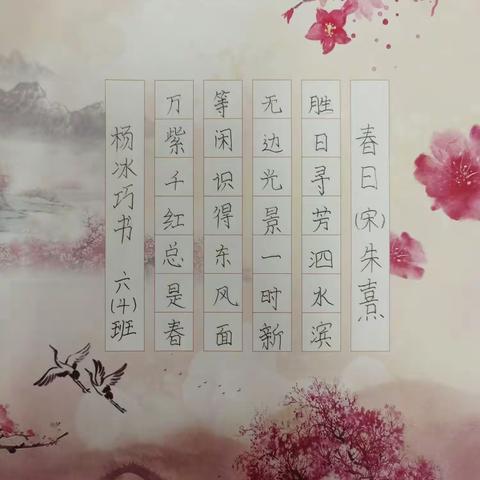 春日(宋)朱熹
胜日寻芳泗水滨
无边光景一时新
等闲识得东风面
万紫千红总是春
杨冰巧书 六(4)班